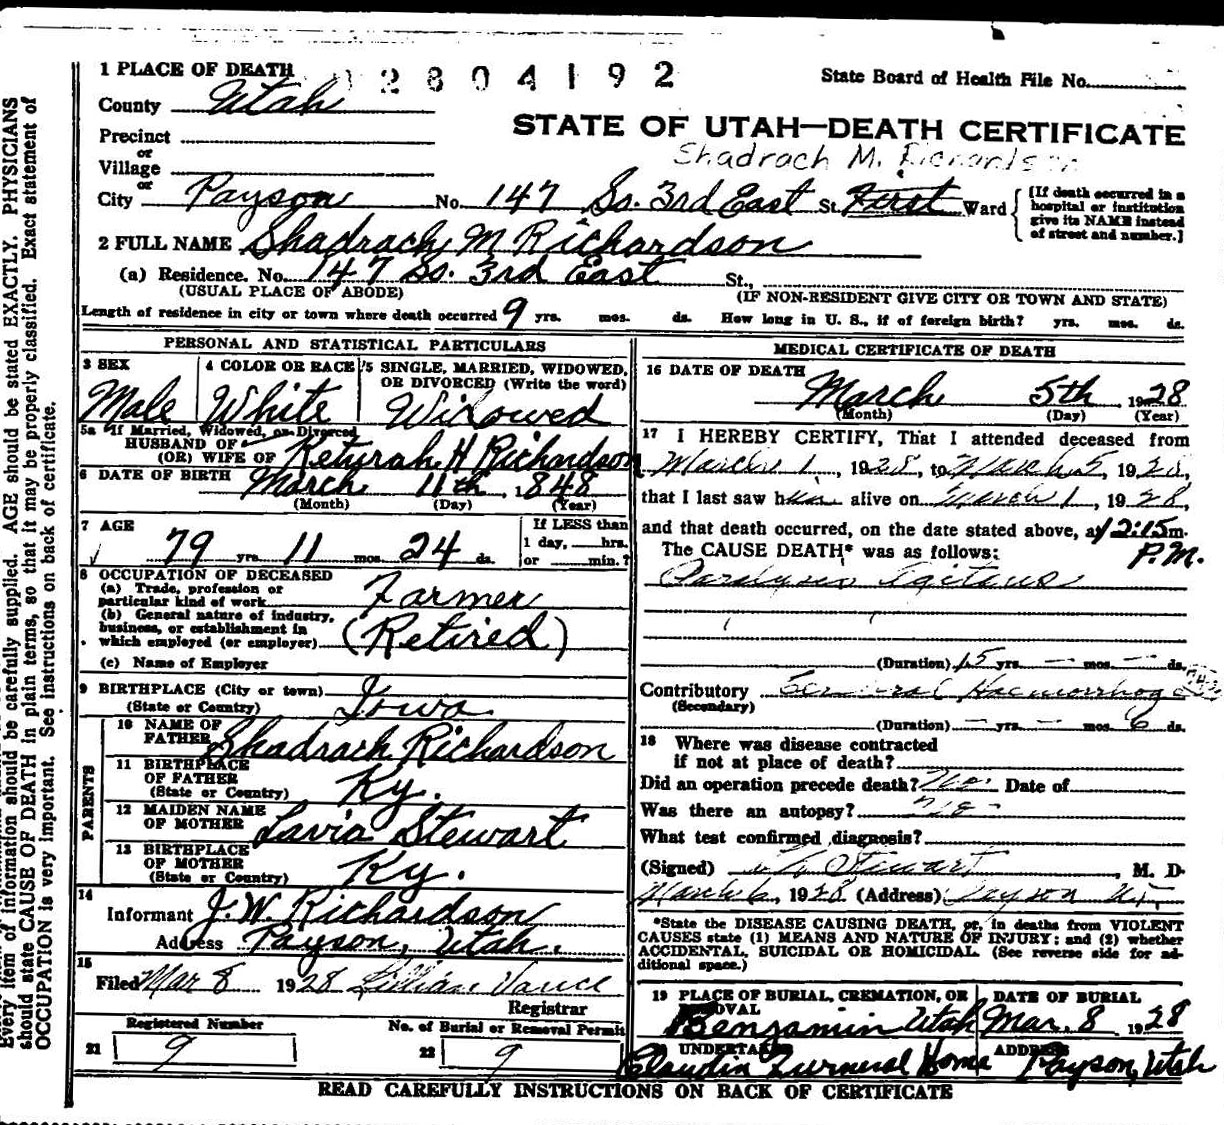 1 PLACE OF DEATH
2804192
State Board of Health File No.
County Utah
STATE OF UTAH—DEATH CERTIFICATE
Precinct
Shadrach M. Richardson
or
Village
or
City Payson No. 147 So. 3rd East St. First Ward
[If death occurred in a hospital or institution give its NAME instead of street and number.]
2 FULL NAME Shadrach M Richardson
(a) Residence. No. 147 So. 3rd East St.,
(USUAL PLACE OF ABODE) (IF NON-RESIDENT GIVE CITY OR TOWN AND STATE)
Length of residence in city or town where death occurred 9 yrs. mos. ds. How long in U. S., if of foreign birth? yrs. mos. ds.
PERSONAL AND STATISTICAL PARTICULARS
3 SEX Male
4 COLOR OR RACE White
5 SINGLE, MARRIED, WIDOWED, OR DIVORCED (Write the word) Widowed
5a If Married, Widowed, or Divorced
HUSBAND OF
(OR) WIFE OF Keturah H Richardson
6 DATE OF BIRTH March 11th 1848
(Month) (Day) (Year)
7 AGE
79 yrs. 11 mos. 24 ds.
If LESS than
1 day, hrs.
or min.?
8 OCCUPATION OF DECEASED
(a) Trade, profession or
particular kind of work Farmer
(b) General nature of industry,
business, or establishment in
which employed (or employer) (Retired)
(c) Name of Employer
9 BIRTHPLACE (City or town)
(State or Country) Iowa
PARENTS
10 NAME OF
FATHER Shadrach Richardson
11 BIRTHPLACE
OF FATHER
(State or Country) Ky.
12 MAIDEN NAME
OF MOTHER Lavia Stewart
13 BIRTHPLACE
OF MOTHER
(State or Country) Ky.
14
Informant J. W. Richardson
Address Payson, Utah.
15
Filed Mar 8 1928 Lillian Vance
Registrar
Registered Number
21 9
No. of Burial or Removal Permit
22 9
MEDICAL CERTIFICATE OF DEATH
16 DATE OF DEATH
March 5th 1928
(Month) (Day) (Year)
17 I HEREBY CERTIFY, That I attended deceased from
March 1, 1928, to March 5, 1928,
that I last saw him alive on March 1, 1928,
and that death occurred, on the date stated above, at 12:15 m.
P.M.
The CAUSE DEATH* was as follows:
Paralysis Agitans
(Duration) 15 yrs. — mos. — ds.
Contributory Haemorrhag
(Secondary)
(Duration) — yrs. — mos. 6 ds.
18 Where was disease contracted
if not at place of death?
Did an operation precede death? No. Date of
Was there an autopsy? No
What test confirmed diagnosis?
(Signed) Stewart, M. D.
March 6, 1928 (Address) Payson Ut.
*State the DISEASE CAUSING DEATH, or, in deaths from VIOLENT
CAUSES state (1) MEANS AND NATURE OF INJURY; and (2) whether
ACCIDENTAL, SUICIDAL OR HOMICIDAL. (See reverse side for ad-
ditional space.)
19 PLACE OF BURIAL, CREMATION, OR
Benjamin Utah
DATE OF BURIAL
Mar. 8 1928
Claudin Furneral Home
ADDRESS Payson, Utah
READ CAREFULLY INSTRUCTIONS ON BACK OF CERTIFICATE
Every item of information should be carefully supplied. AGE should be stated EXACTLY. PHYSICIANS
should state CAUSE OF DEATH in plain terms, so that it may be properly classified. Exact statement of
OCCUPATION is very important. See instructions on back of certificate.